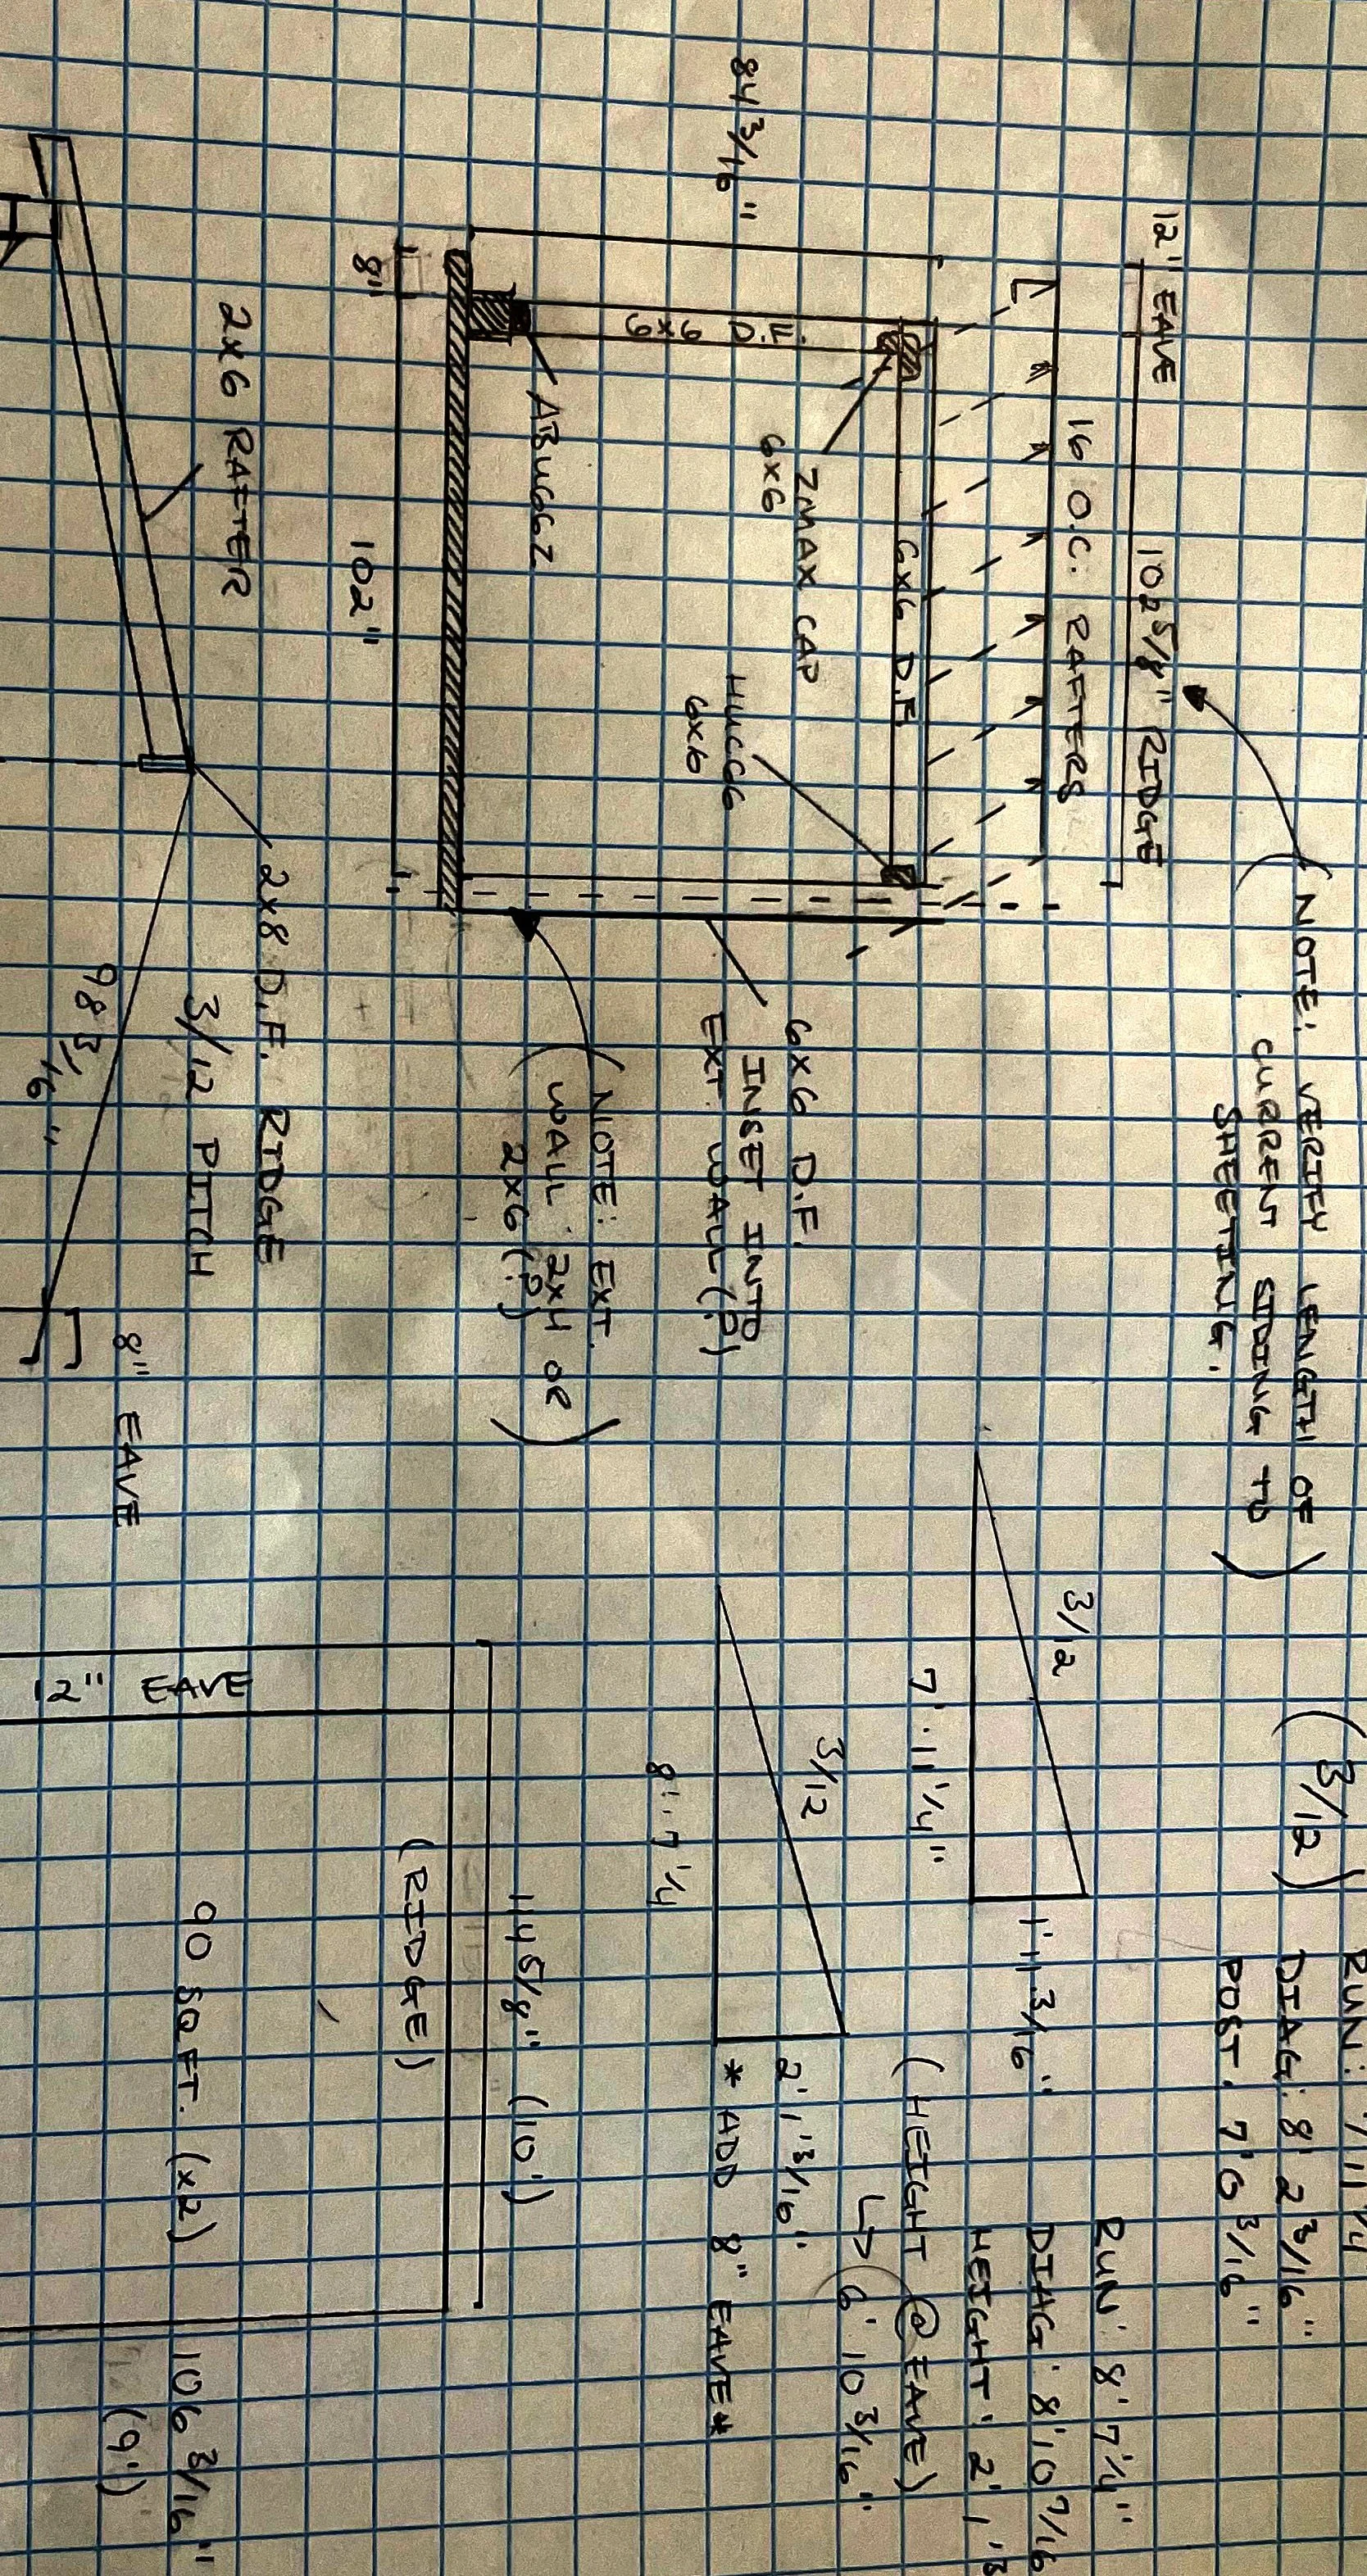 NOTE: VERIFY LENGTH OF
CURRENT SIDING TO
SHEETING.
12" EAVE
102 5/8" RIDGE
16 O.C. RAFTERS
84 3/16"
6x6 D.F.
6x6 D.F.
ZMAX CAP
6x6
HUCC66
6x6
ABU66Z
6x6 D.F.
INSET INTO
EXT. WALL (?)
NOTE: EXT.
WALL: 2x4 OR
2x6 (?)
8"
102"
2x6 RAFTER
2x8 D.F. RIDGE
3/12 PITCH
98 3/16"
8" EAVE
(3/12)
RUN: 7' 11 1/4
DIAG: 8' 2 3/16"
POST: 7' 0 3/16"
3/12
7' 11 1/4"
1' 11 13/16"
RUN: 8' 7 1/4"
DIAG: 8' 10 7/16
HEIGHT: 2' 1 13
(HEIGHT @ EAVE)
6' 10 3/16"
3/12
8' 7 1/4
2' 1 13/16"
* ADD 8" EAVE *
114 5/8" (10')
(RIDGE)
12" EAVE
90 SQ FT. (x2)
106 3/16"
(9')